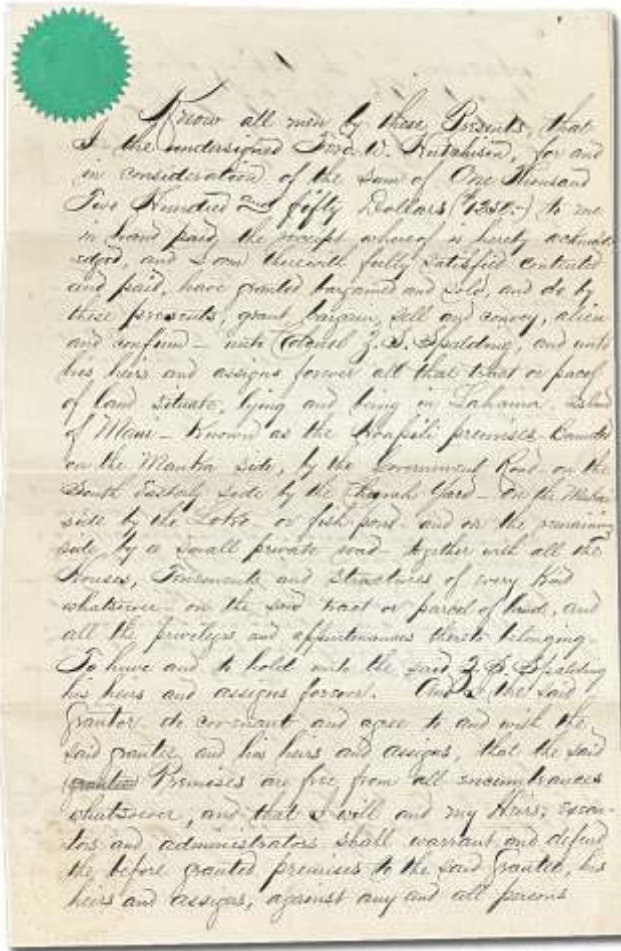 Know all men by these Presents, that
I the undersigned W. Hutchison, for and
in consideration of the sum of One Thousand
Two Hundred and fifty Dollars ($1250.-) to me
in hand paid the receipt whereof is hereby acknowl-
edged, and I am therewith fully satisfied contented
and paid, have granted bargained and sold, and do by
these presents, grant bargain, sell and convey, alien
and confirm - unto Colonel Z. S. Spalding, and unto
his heirs and assigns forever all that tract or parcel
of land situate, lying and being in Lahaina, Island
of Maui - Known as the Hoapili premises
on the side, by the Government Road - on the
South Easterly side by the Yard - on the
side by the Loko - or fish pond - and on the remaining
side by a small private road - together with all the
Houses, Tenements and Structures of every Kind
whatsoever - on the said tract or parcel of land, and
all the privileges and appurtenances thereto belonging -
To have and to hold unto the said Z. S. Spalding
his heirs and assigns forever. And I the said
Grantor do covenant and agree to and with the
said grantee and his heirs and assigns, that the said
Premises are free from all encumbrances
whatsoever, and that I will and my Heirs, execu-
tors and administrators shall warrant and defend
the before granted premises to the said grantee, his
heirs and assigns, against any and all persons